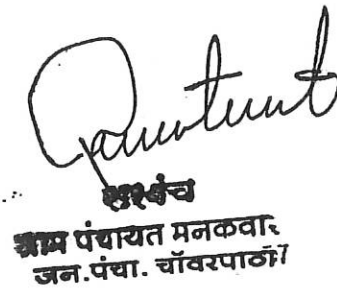 सरपंच
ग्राम पंचायत मनकवारा
जन.पंचा. चॉवरपाठा